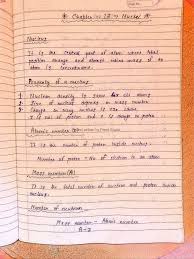 Nucleus
It is the central part of atom where total
positive charge and almost entire mass of
atom is concentrated.
Property of a nucleus
1 Nucleus density is same for all atoms
2 Size of nucleus depends on mass number
3 Charge on every nucleus is due to
It is no. of proton and it is charge in proton
Atomic number
It is the number of proton inside nucleus.
Number of proton = No of electron in an atom
Mass number (A)
It is the total number of neutron and proton inside
nucleus.
Number of neutron
Mass number - Atomic number
A-Z